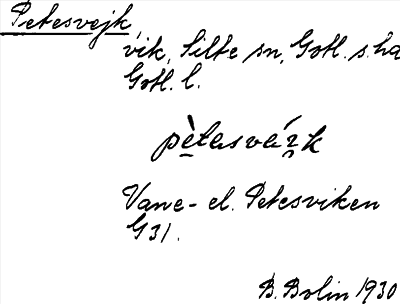 Petesvejk,
vik, Silte sn, Gotl. s. hd
Gotl. l.
Vane- el. Petesviken
G31.
B. Bolin 1930